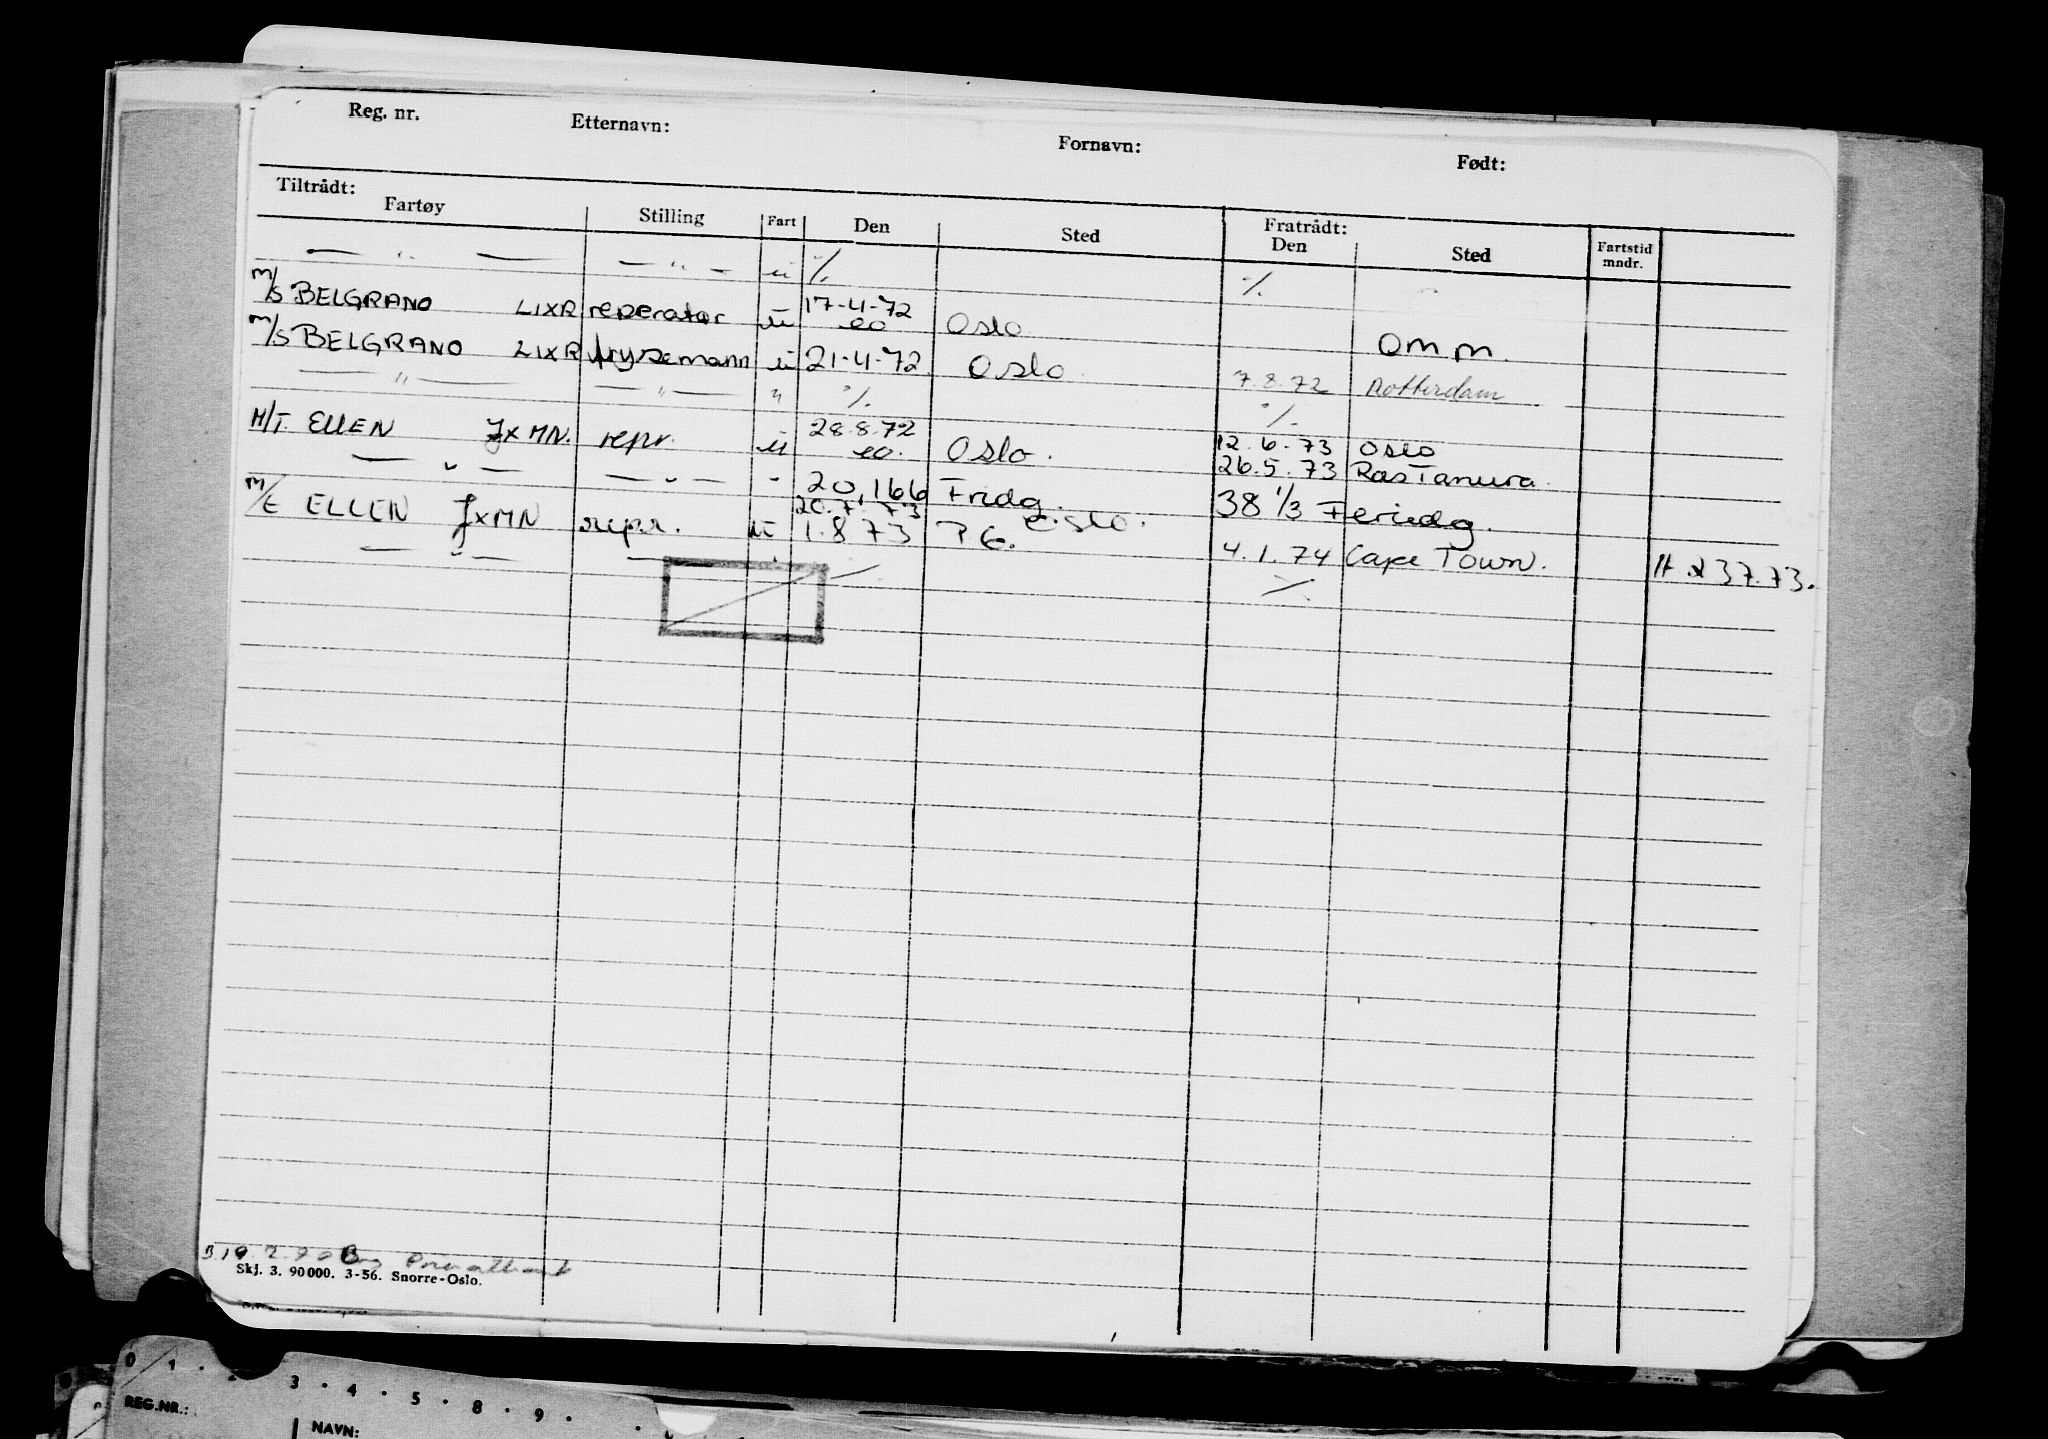 Reg. nr. Etternavn: Fornavn: Født:
Tiltrådt: Fratrådt:
Fartøy Stilling Fart Den Sted Den Sted Fartstid mndr.
— " — — " — u ·/. ·/.
M/S BELGRANO LIXR reperatør u 17-4-72 ea Oslo
M/S BELGRANO LIXR frysemann u 21-4-72 Oslo omm.
— " — — " — " ·/. 7.8.72 Rotterdam
·/.
M/T ELLEN JXMN. repr. u 28.8.72 ea. Oslo. 12.6.73 Oslo
— " — — " — " 26.5.73 Ras Tanura.
20,166 Fridg. 38 1/3 Feriedg.
M/T ELLEN JXMN repr. u 20.7.73 Oslo.
1.8.73 P.G.
— " — — " 4.1.74 Cape Town. 237.73.
Skj. 3. 90000. 3-56. Snorre-Oslo.
0 1 · 2 3 · 4 · 5 · 8 · 9 ·
REG.NR.: NAVN: